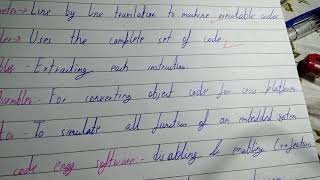 Line by line translation to machine executable codes
Uses the complete set of code
Extracting each instruction
For converting object code for cross platform
To simulate all function of an embedded system
code engg software:- disabling & enabling